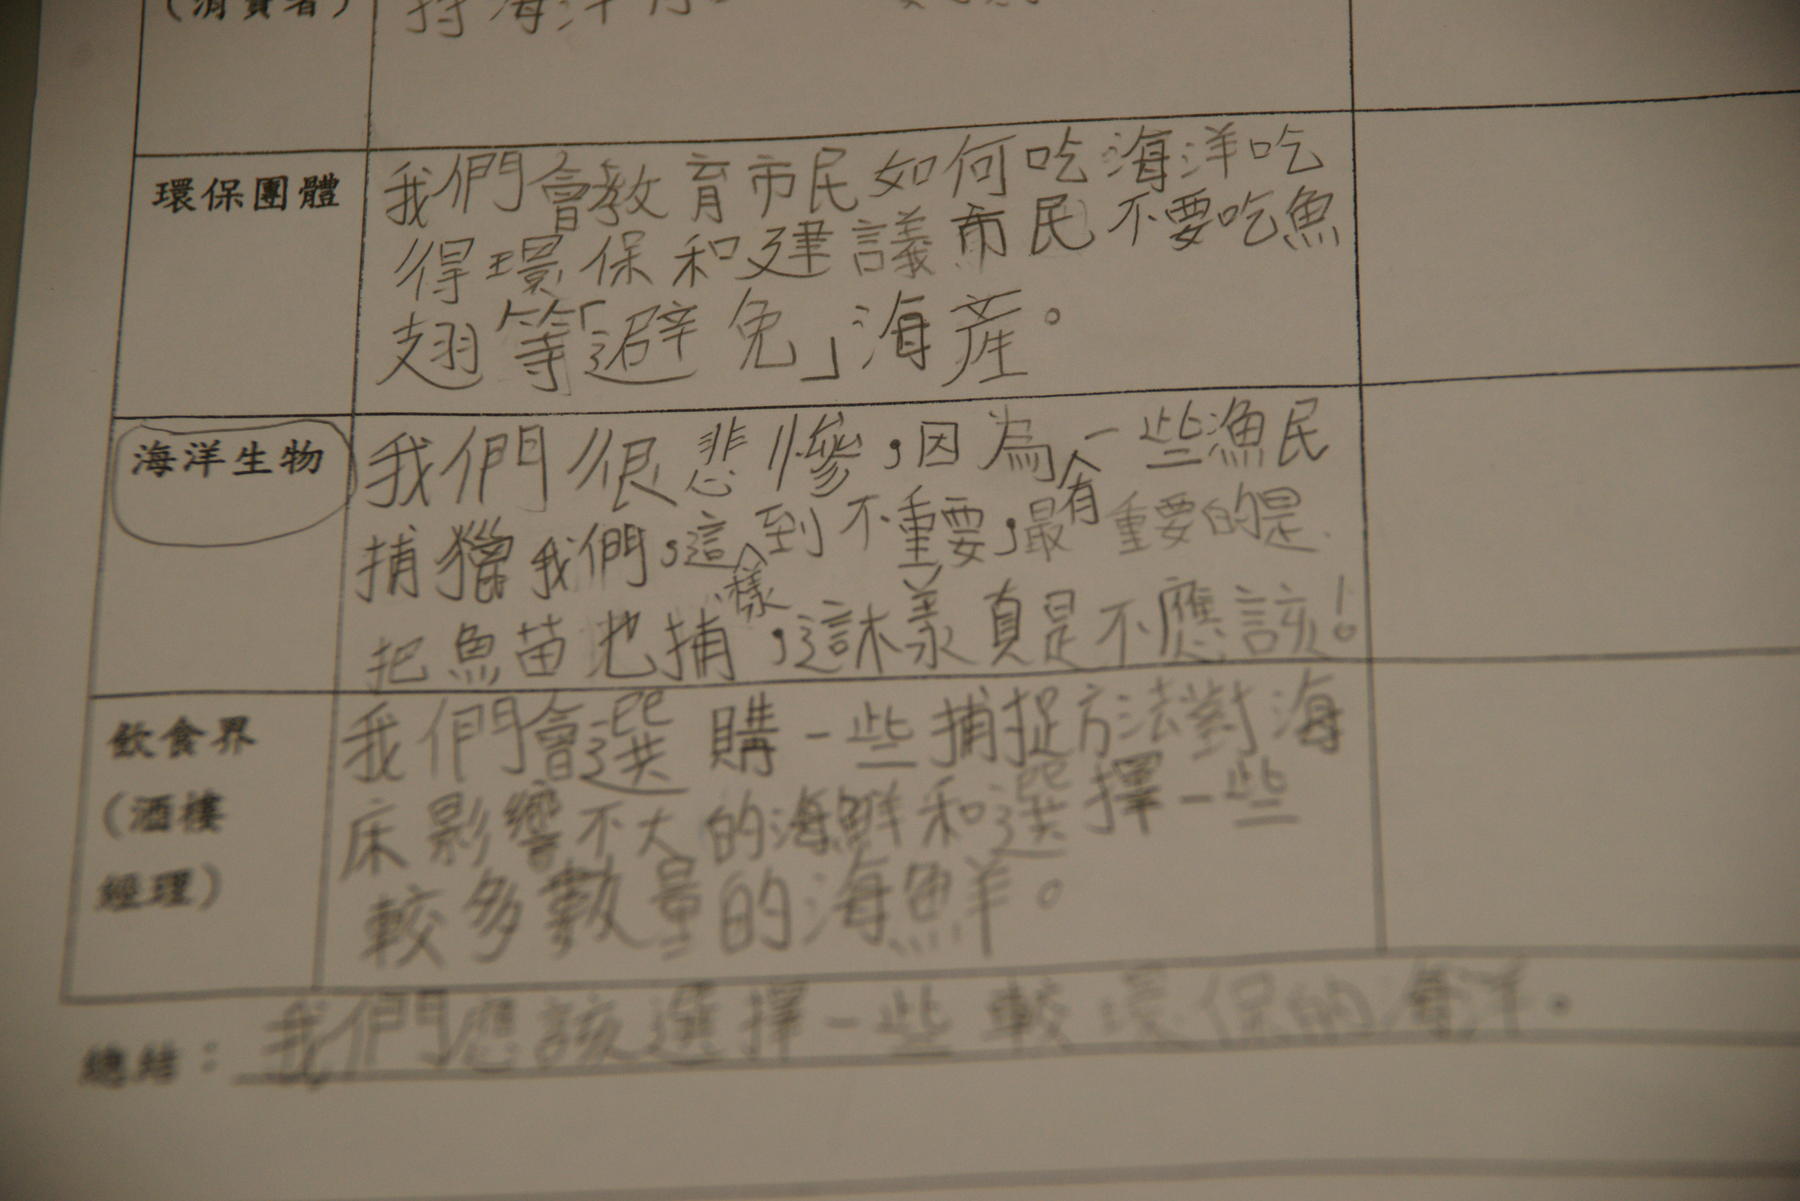 (消費者)
環保團體
我們會教育市民如何吃海洋吃
得環保和建議市民不要吃魚
翅等「避免」海產。
海洋生物
我們很悲慘,因為有一些漁民
捕獵我們,這樣到不重要,最重要的是
把魚苗也捕,這樣真是不應該!
飲食界
(酒樓
經理)
我們會選購一些捕捉方法對海
床影響不大的海鮮和選擇一些
較多數量的海鮮。
總結:我們應該選擇一些較環保的海洋。